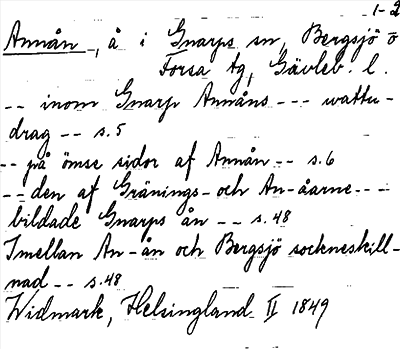 1-2
Annån, å i Gnarps sn, Bergsjö o
Forsa tg, Gävleb. l.
-- inom Gnarp Annåns --- vattu-
drag -- s.5
-- på ömse sidor af Annån -- s.6
-- den af Gränings- och An-åarne ---
bildade Gnarps ån -- s.48
Imellan An-ån och Bergsjö sockneskill-
nad -- s.48
Widmark, Helsingland II 1849